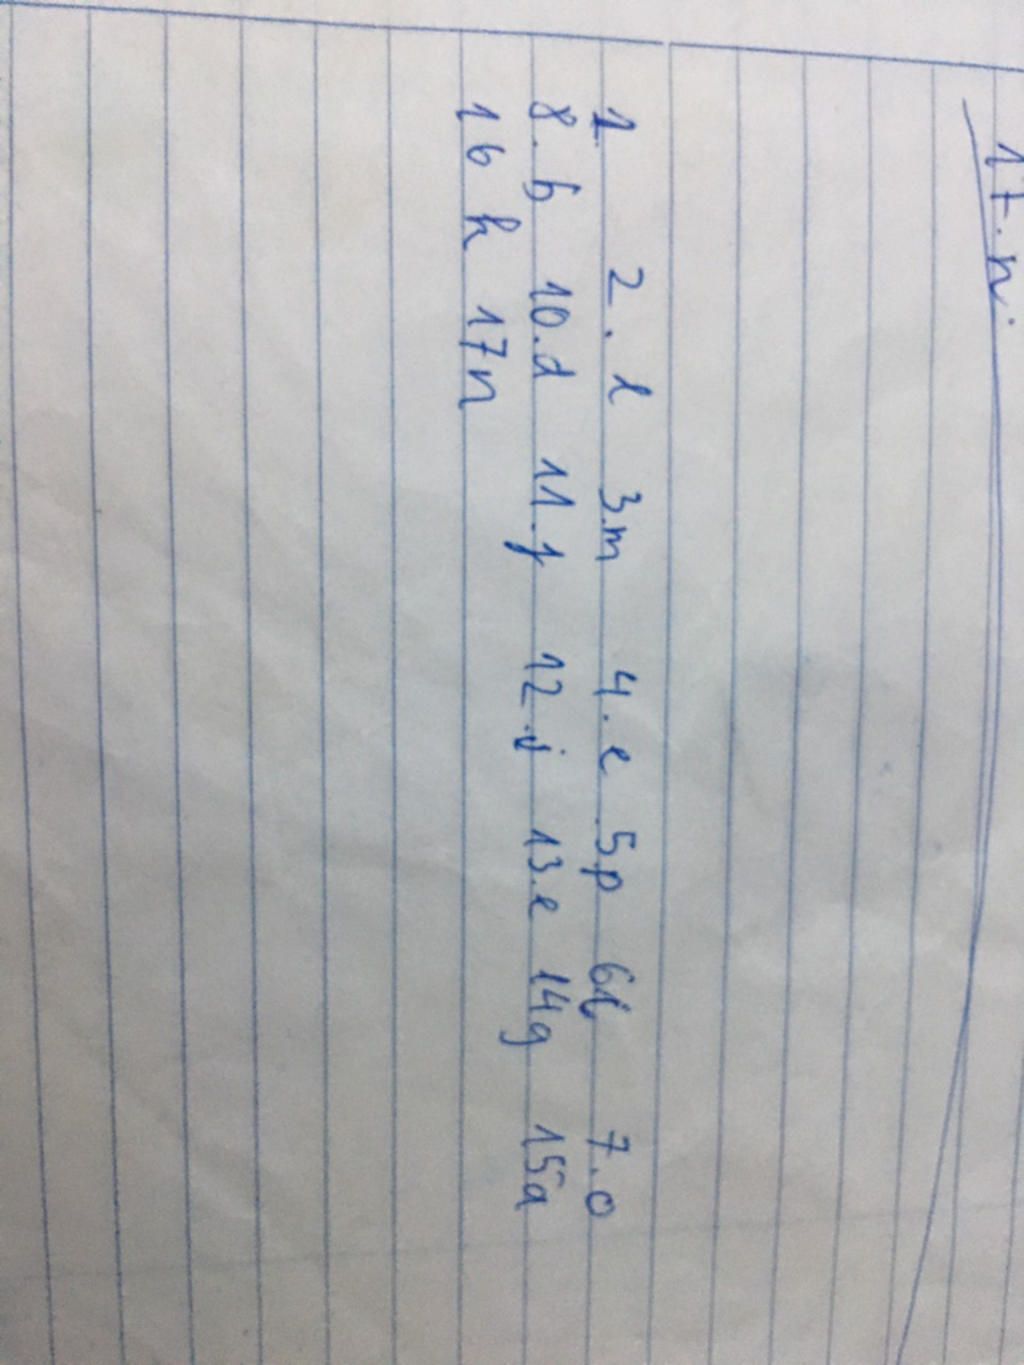 17. n.
1 2. l 3.m 4. e 5.p 6i 7. o
8. b 10.d 11.j 12.i 13.e 14g 15a
16 k 17n